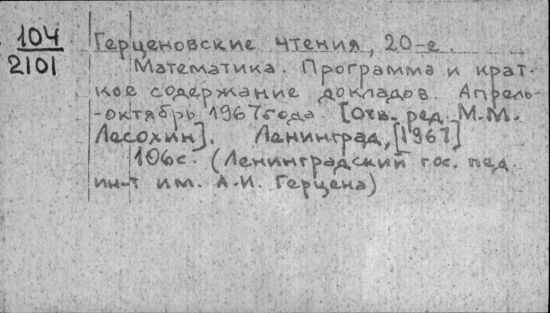 104
2101
Герценовские чтения, 20-е.
Математика. Программа и крат-
кое содержание докладов. Апрель-
-октябрь 1967 года. [Отв. ред. М.М.
Лесохин]. Ленинград, [1967]
106с. (Ленинградский гос. пед.
ин-т им. А.И. Герцена)